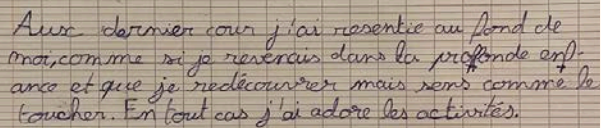 Aux dernier cour j'ai resentie au fond de
moi, comme si je revenais dans la proffonde enf-
ance et que je redécouvrer mais sens comme le
toucher. En tout cas j'ai adore les activités.